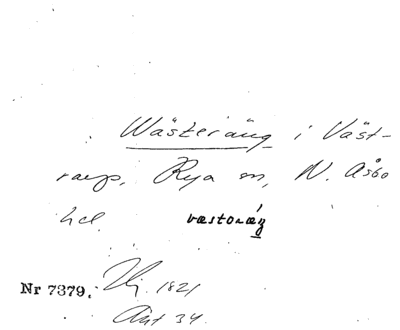 Wästeräng i Väst-
rarp, Rya sn, N. Åsbo
hd. væstoræŋ
Nr 7379. 1821
Ant 34.